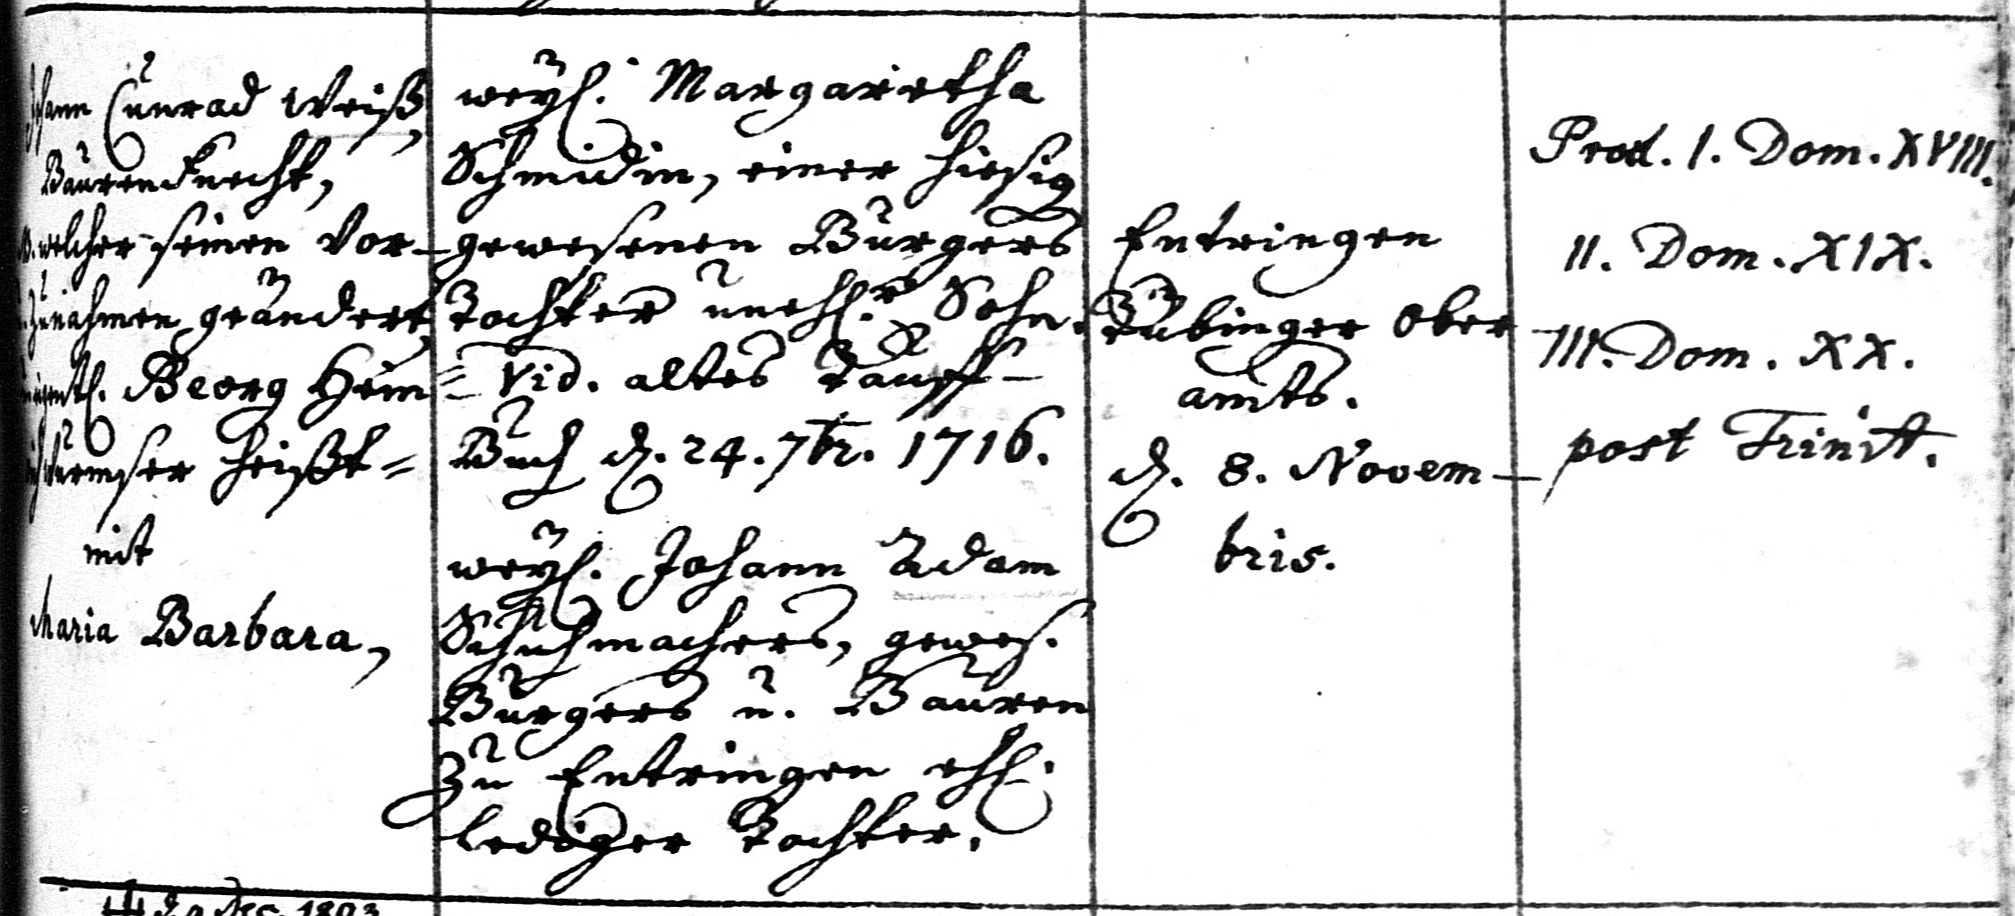 Johann Cunrad Weiß,
Baurenknecht,
welcher seinen Vor-
Zunahmen geändert,
Georg Heim
heißt =
mit
Maria Barbara,
weyl. Margaretha
Schmidin, einer hiesig
gewesenen Burgers
Tochter unehl.r Sohn.
= Vid. altes Tauff-
Buch d. 24. 7br. 1716.
weyl. Johann Adam
Schuhmachers, gewes.
Burgers u. Bauren
zu Entringen ehl.
lediger Tochter.
Entringen
Tübinger Ober
amts.
d. 8. Novem-
bris.
Procl. I. Dom. XVIII.
II. Dom. XIX.
III. Dom. XX.
post Trinit.